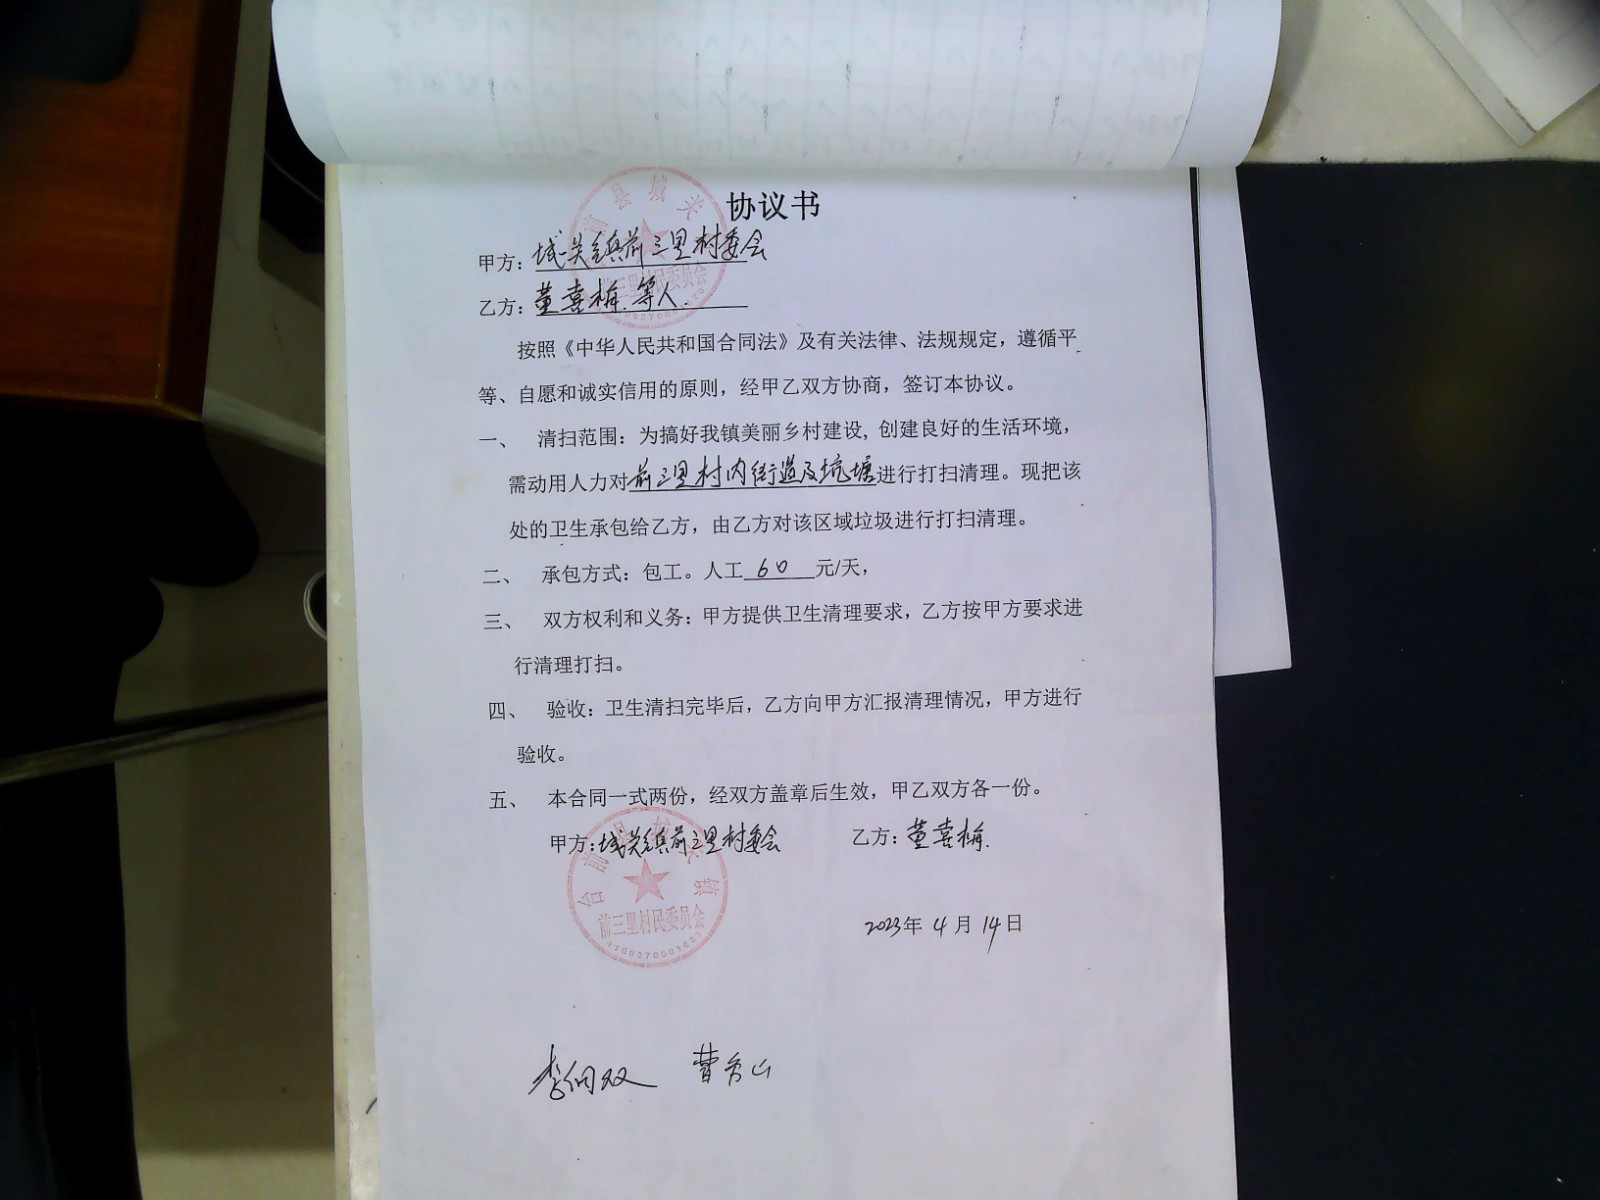 协议书
甲方：城关镇前三里村委会
乙方：董喜梅.等人.
按照《中华人民共和国合同法》及有关法律、法规规定，遵循平
等、自愿和诚实信用的原则，经甲乙双方协商，签订本协议。
一、 清扫范围：为搞好我镇美丽乡村建设, 创建良好的生活环境，
需动用人力对前三里村内街道及坑塘进行打扫清理。现把该
处的卫生承包给乙方，由乙方对该区域垃圾进行打扫清理。
二、 承包方式：包工。人工 60 元/天，
三、 双方权利和义务：甲方提供卫生清理要求，乙方按甲方要求进
行清理打扫。
四、 验收：卫生清扫完毕后，乙方向甲方汇报清理情况，甲方进行
验收。
五、 本合同一式两份，经双方盖章后生效，甲乙双方各一份。
甲方：城关镇前三里村委会 乙方：董喜梅.
台前县城关镇
前三里村民委员会
2023年 4 月 14 日